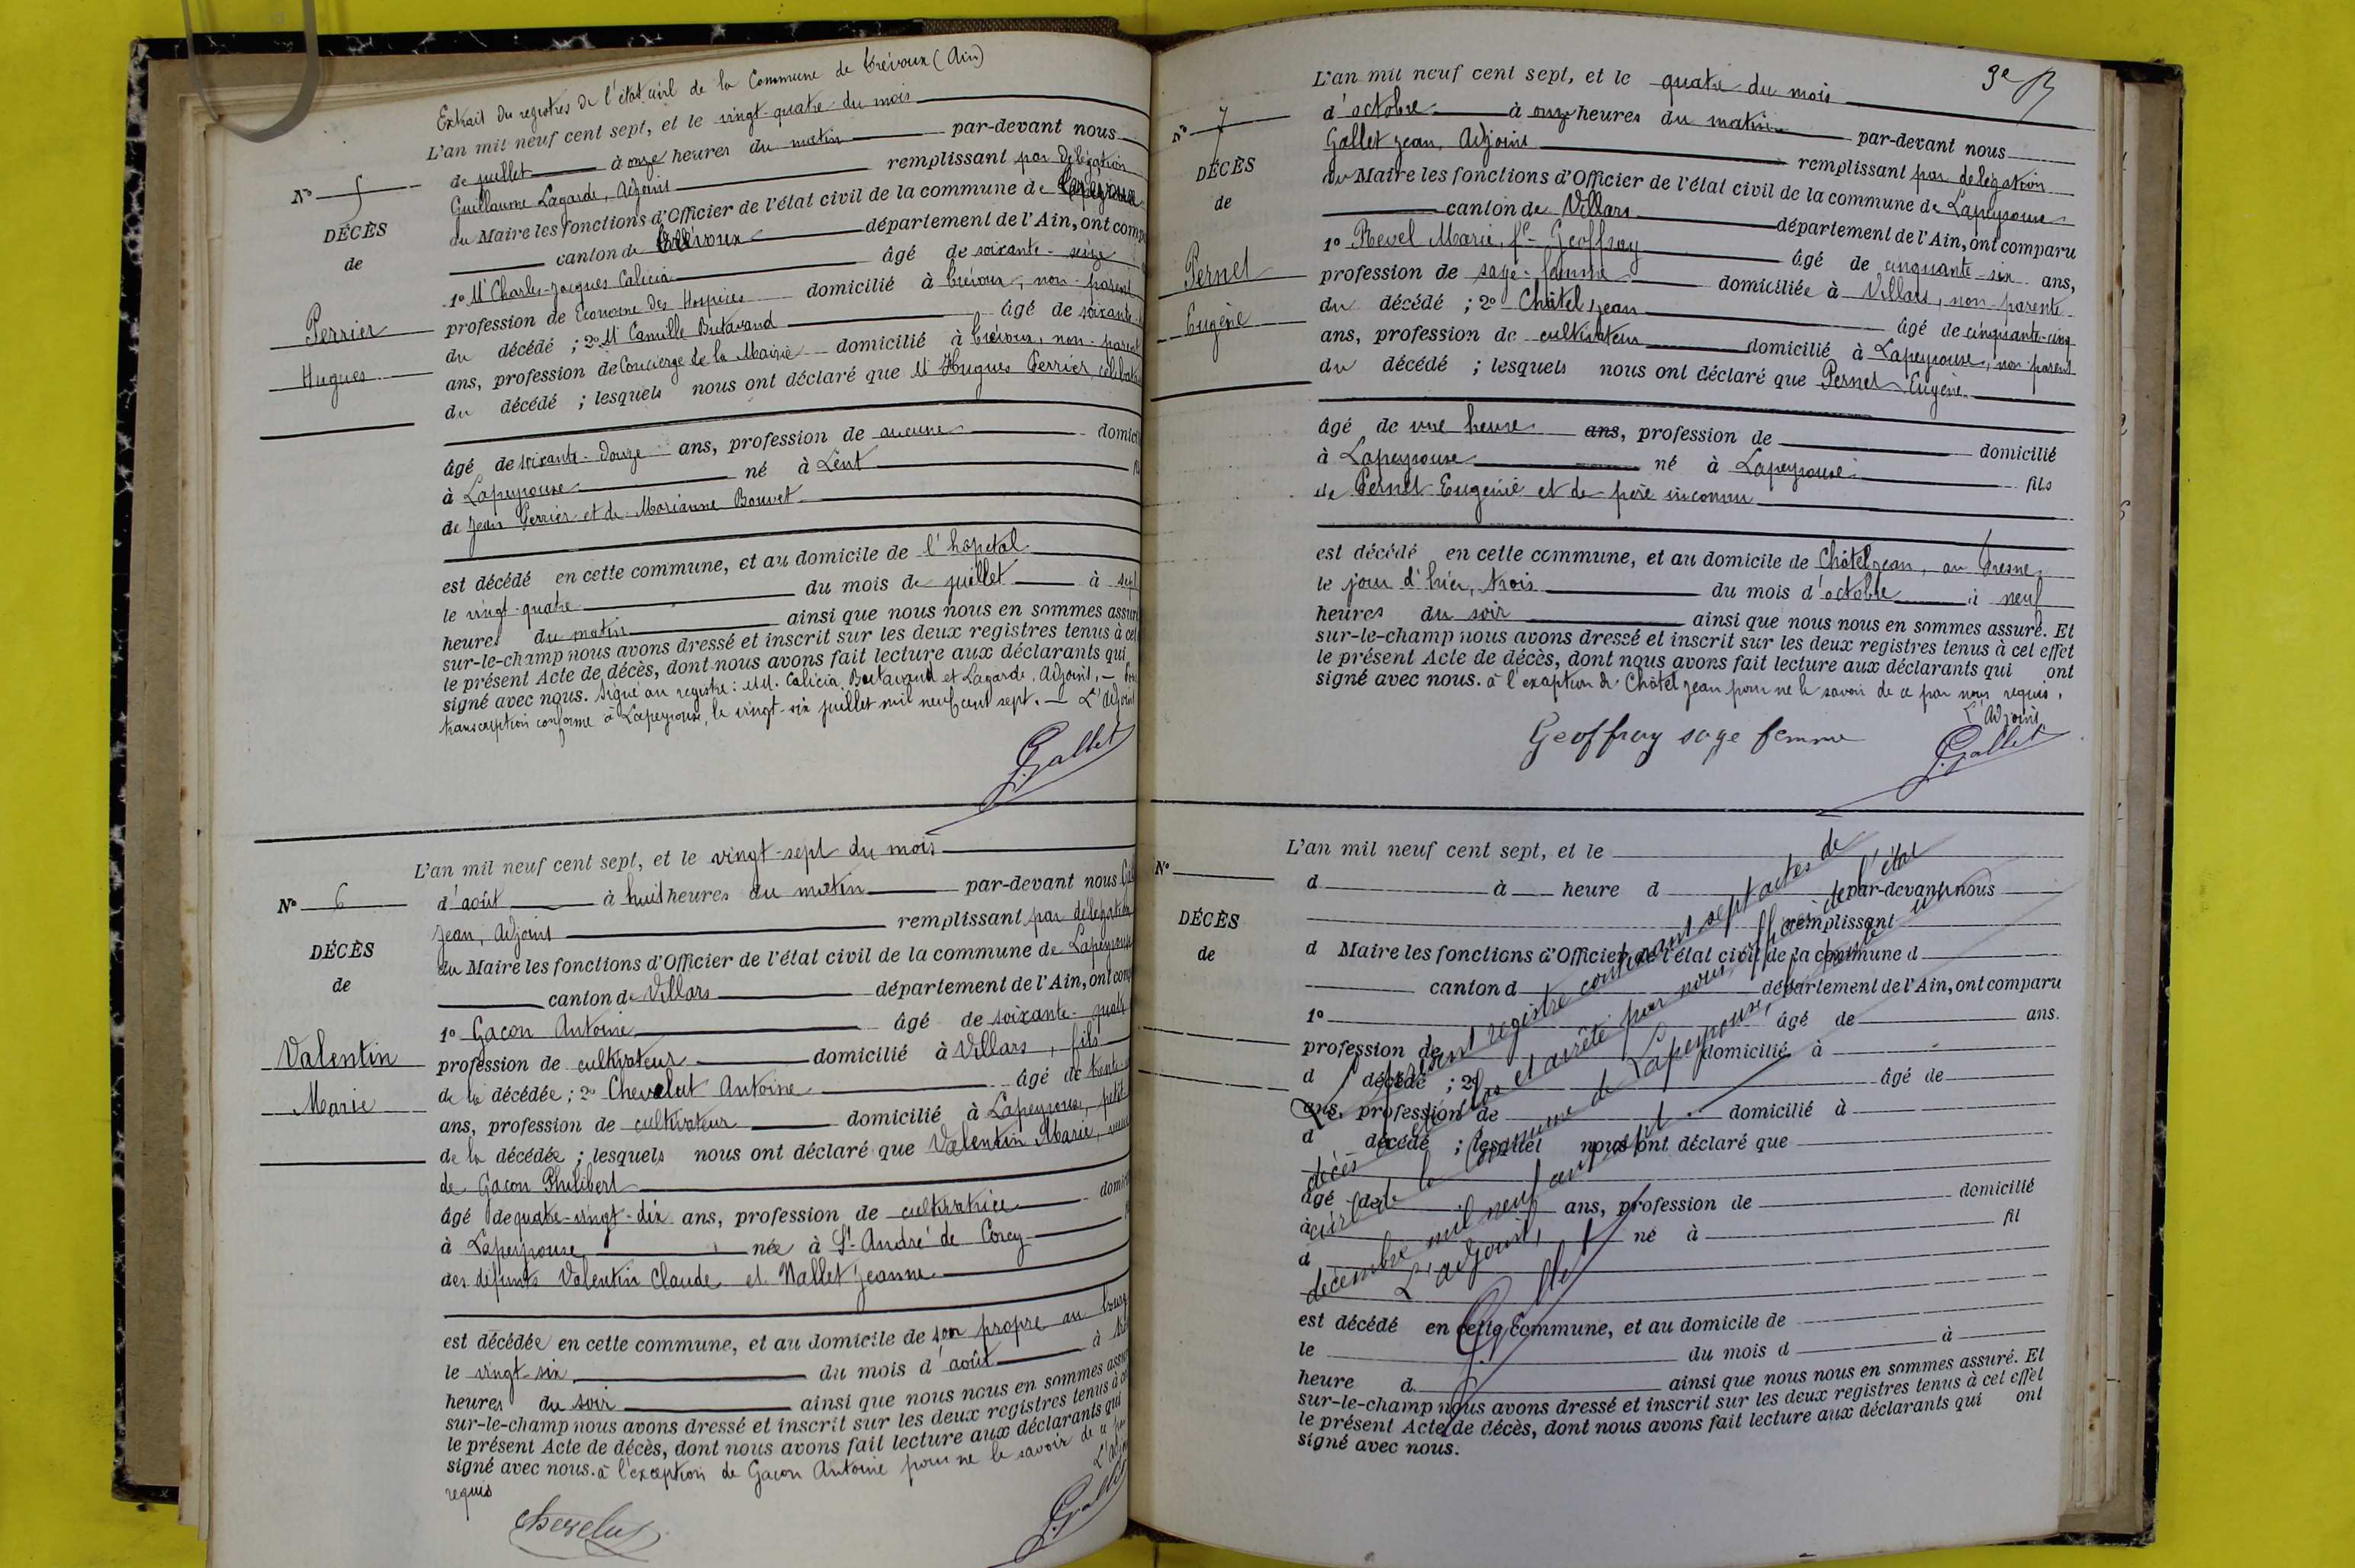 Extrait du registres de l'état civil de la Commune de Trévoux (Ain)
L'an mil neuf cent sept, et le vingt-quatre du mois
de juillet à onze heures du matin par-devant nous
Guillaume Lagarde, Adjoint remplissant par délégation
du Maire les fonctions d'Officier de l'état civil de la commune de
canton de Trévoux département de l'Ain, ont comp
1° M Charles-Jacques Calicia âgé de soixante-seize
profession de Econome des Hospices domicilié à Trévoux, non-parent
du décédé ; 2° M Camille Butavand âgé de soixante
ans, profession de Concierge de la Mairie domicilié à Trévoux, non-parent
du décédé ; lesquels nous ont déclaré que M Hugues Perrier, célibat
âgé de soixante-douze ans, profession de aucune domici
à Lapeyrouse né à Lent
de Jean Perrier et de Marianne Bouvet
est décédé en cette commune, et au domicile de l'hôpital
le vingt-quatre du mois de juillet à sept
heures du matin ainsi que nous nous en sommes assuré
sur-le-champ nous avons dressé et inscrit sur les deux registres tenus à cet
le présent Acte de décès, dont nous avons fait lecture aux déclarants qui
signé avec nous. Signé au registre : MM. Calicia, Butavand et Lagarde, Adjoint, —
transcription conforme à Lapeyrouse, le vingt-six juillet mil neuf cent sept. — L'Adjoint
J. Gallet
N° 5
DÉCÈS
de
Perrier
Hugues
L'an mil neuf cent sept, et le vingt-sept du mois
d'août à huit heures du matin par-devant nous
Jean, Adjoint remplissant par délégation
du Maire les fonctions d'Officier de l'état civil de la commune de Lapeyrouse
canton de Villars département de l'Ain, ont com
1° Gacon Antoine âgé de soixante-quatre
profession de cultivateur domicilié à Villars, fils
de la décédée ; 2° Chevelut Antoine âgé de trente
ans, profession de cultivateur domicilié à Lapeyrouse, petit
de la décédée ; lesquels nous ont déclaré que Valentin Marie, veuve
de Gacon Philibert
âgé de quatre-vingt-dix ans, profession de cultivatrice domici
à Lapeyrouse née à St-André de Corcy
des défunts Valentin Claude et Nallet Jeanne
est décédée en cette commune, et au domicile de son propre au bourg
le vingt-six du mois d'août à
heures du soir ainsi que nous nous en sommes assu
sur-le-champ nous avons dressé et inscrit sur les deux registres tenus à ce
le présent Acte de décès, dont nous avons fait lecture aux déclarants qui
signé avec nous. à l'exception de Gacon Antoine pour ne le savoir de ce
requis
L'Adj
Chevelut
J. Gallet
N° 6
DÉCÈS
de
Valentin
Marie
L'an mil neuf cent sept, et le quatre du mois
d'octobre à onze heures du matin par-devant nous
Gallet Jean, Adjoint remplissant par délégation
du Maire les fonctions d'Officier de l'état civil de la commune de Lapeyrouse
canton de Villars département de l'Ain, ont comparu
1° Revel Marie, fe Geoffray âgé de cinquante-six ans,
profession de sage-femme domiciliée à Villars, non-parente
du décédé ; 2° Châtel Jean âgé de cinquante-cinq
ans, profession de cultivateur domicilié à Lapeyrouse, non-parent
du décédé ; lesquels nous ont déclaré que Pernet Eugène
âgé de une heure ans, profession de domicilié
à Lapeyrouse né à Lapeyrouse
fils
de Pernet Eugénie et de père inconnu
est décédé en cette commune, et au domicile de Châtel Jean, au Fresne,
le jour d'hier, trois du mois d'octobre à neuf
heures du soir ainsi que nous nous en sommes assuré. Et
sur-le-champ nous avons dressé et inscrit sur les deux registres tenus à cet effet
le présent Acte de décès, dont nous avons fait lecture aux déclarants qui ont
signé avec nous. à l'exception de Châtel Jean pour ne le savoir de ce par nous requis.
L'Adjoint
Geoffray sage femme
J. Gallet
N° 7
DÉCÈS
de
Pernet
Eugène
L'an mil neuf cent sept, et le
d à heure d par-devant nous
remplissant
d Maire les fonctions d'Officier de l'état civil de la commune d
canton d département de l'Ain, ont comparu
1° âgé de ans.
profession de domicilié à
d décédé ; 2° âgé de
ans, profession de domicilié à
d décédé ; lesquel nous ont déclaré que
âgé de ans, profession de domicilié
à né à fil
d
est décédé en cette commune, et au domicile de
le du mois d à
heure d ainsi que nous nous en sommes assuré. Et
sur-le-champ nous avons dressé et inscrit sur les deux registres tenus à cet effet
le présent Acte de décès, dont nous avons fait lecture aux déclarants qui ont
signé avec nous.
N°
DÉCÈS
de
Le présent registre contenant sept actes de
décès a été clos et arrêté par nous, officier de l'état
civil de la Commune de Lapeyrouse, le trente un
décembre mil neuf cent sept.
L'adjoint,
J. Gallet